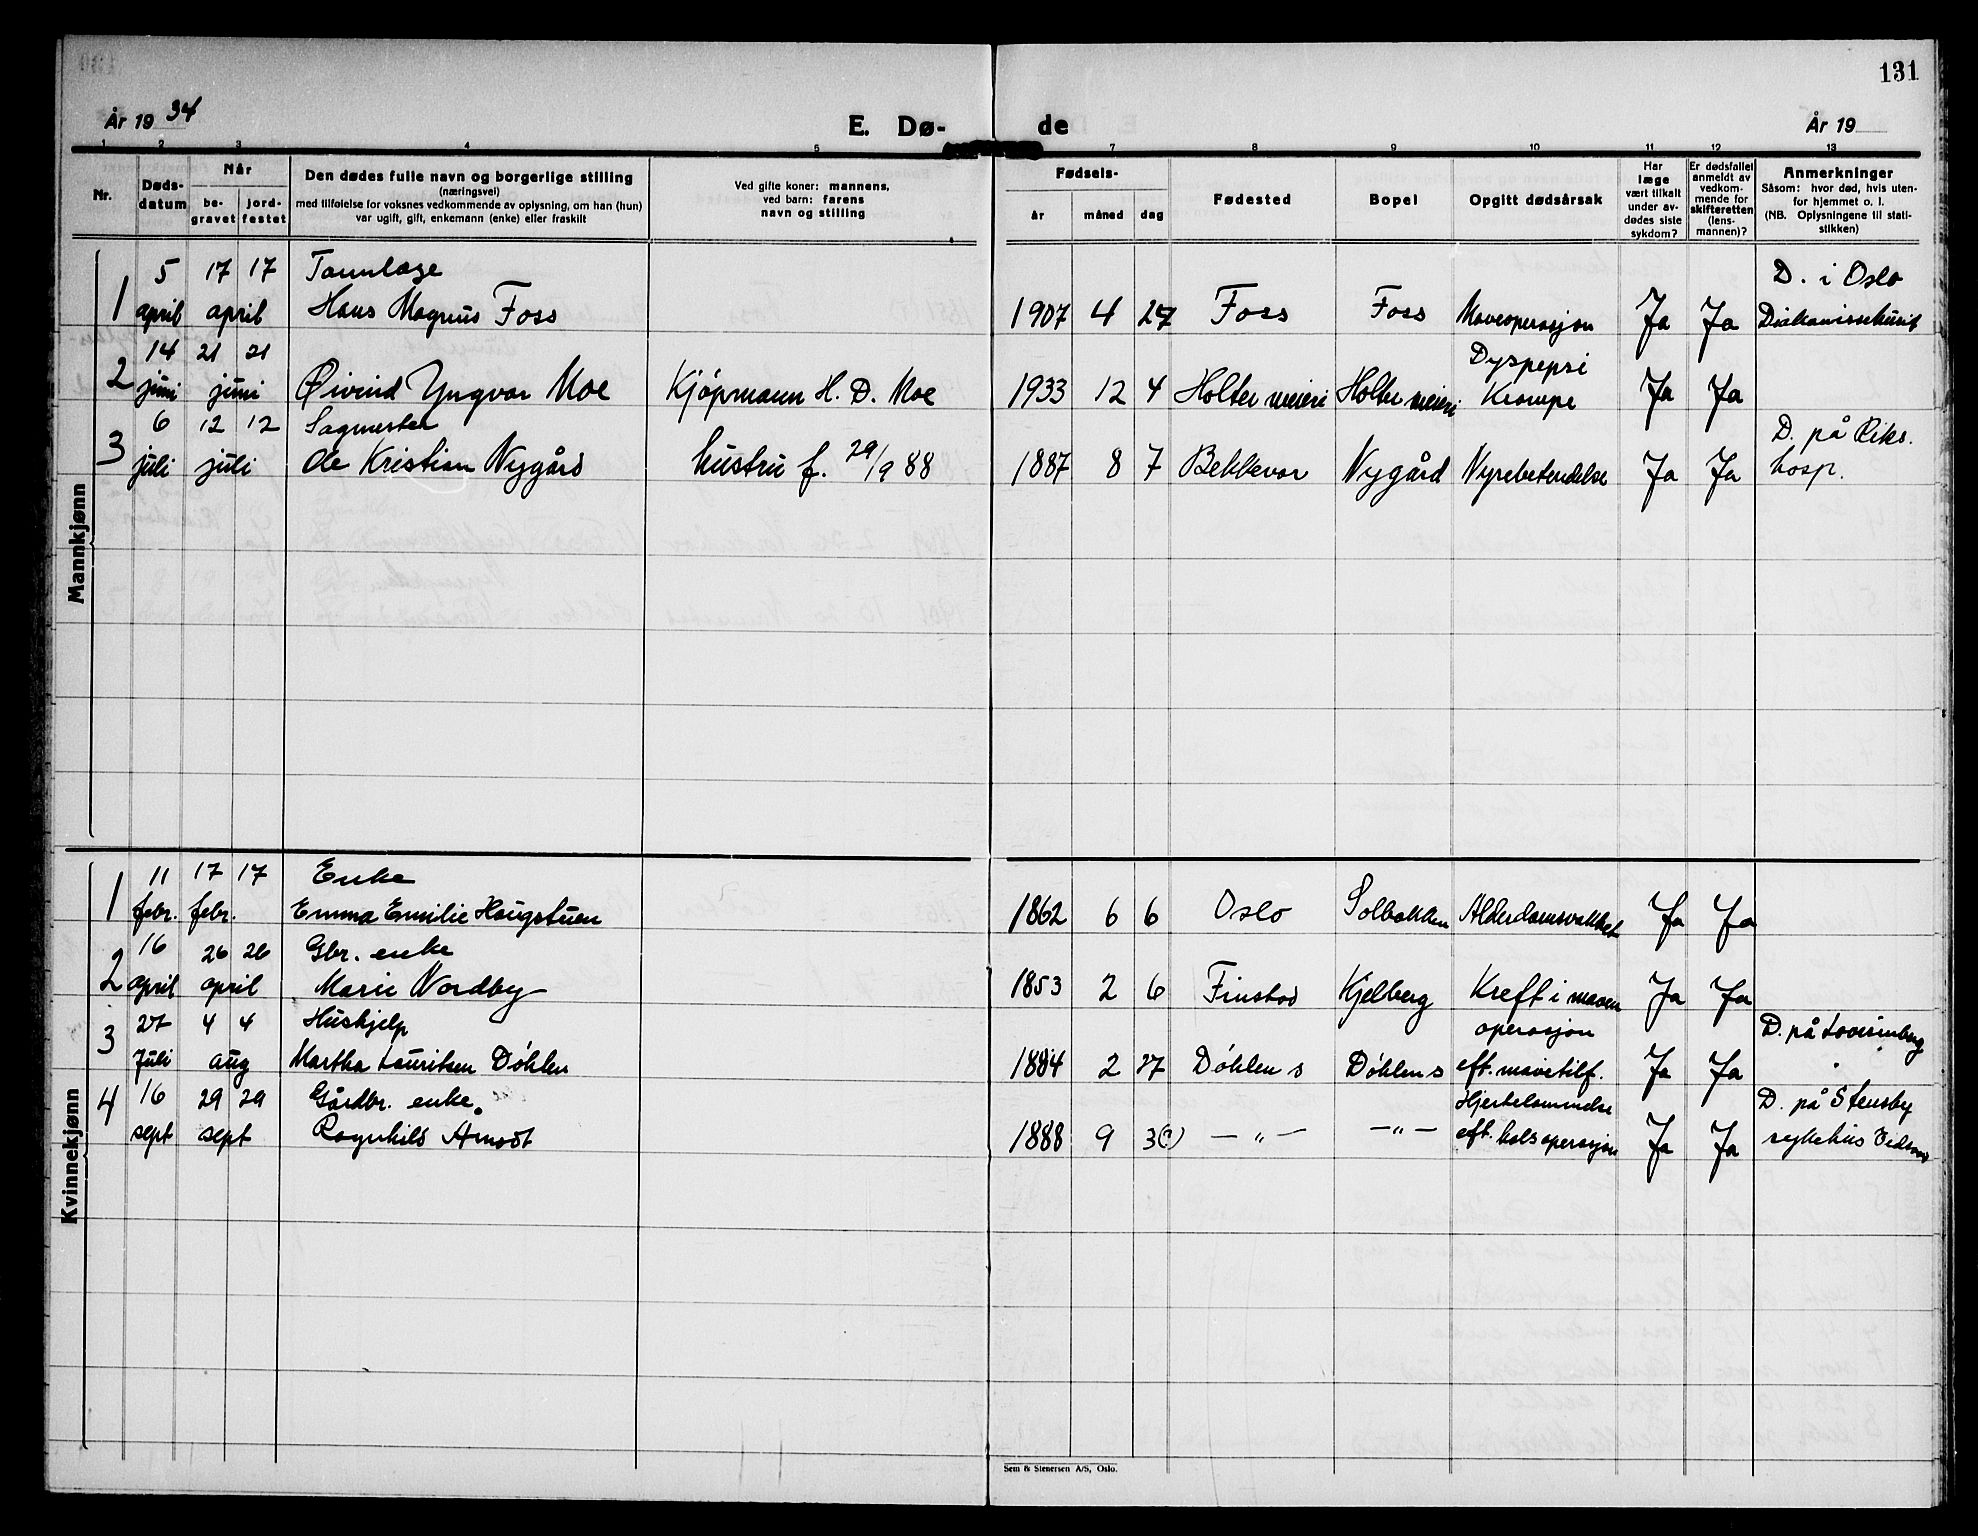 131
År 19 34
E. Dø-
de
År 19
1 2 3 4 5 7 8 9 10 11 12 13
Nr.
Døds-
datum
Når
be-
gravet
jord-
festet
Den dødes fulle navn og borgerlige stilling
(næringsvei)
med tilføielse for voksnes vedkommende av oplysning, om han (hun)
var ugift, gift, enkemann (enke) eller fraskilt
Ved gifte koner: mannens,
ved barn: farens
navn og stilling
Fødsels-
år måned dag
Fødested
Bopel
Opgitt dødsårsak
Har
læge
vært tilkalt
under av-
dødes siste
sykdom?
Er dødsfallet
anmeldt av
vedkom-
mende for
skifteretten
(lens-
mannen)?
Anmerkninger
Såsom: hvor død, hvis uten-
for hjemmet o. l.
(NB. Oplysningene til stati-
stikken)
Mannkjønn
5 17 17 Tannlæge D. i Oslo
1 april april Hans Magnus Foss 1907 4 27 Foss Foss Maveoperasjon Ja Ja Diakonissehuset
14 21 21 Dyspepsi
2 juni juni Øivind Yngvar Moe Kjøpmann H. D. Moe 1933 12 4 Holter meieri Holter meieri Krampe Ja Ja
6 12 12 Sagmester D. på Riks.
3 juli juli Ole Kristian Nygård hustru f. 29/9 88 1887 8 7 Bekkevar Nygård Nyrebetendelse Ja Ja hosp.
Kvinnekjønn
11 17 17 Enke
1 febr. febr. Emma Emilie Haugstuen 1862 6 6 Oslo Solbakken Alderdomsvakhet Ja Ja
16 26 26 Gbr. enke
2 april april Marie Nordby 1853 2 6 Finstad Kjelberg Kreft i maven Ja Ja
27 4 4 Hushjelp operasjon D. på Lovisenberg
3 juli aug Martha Lauritsen Døhlen 1884 2 27 Døhlen s Døhlen s eft. mavetilf. Ja Ja
16 29 29 Gårdbr. enke. Hjertelammelse D. på Stensby
4 sept sept Ragnhild Amodt 1888 9 3(?) — „ — — „ — eft. halsoperasjon Ja Ja sykehus
Sem & Stenersen A/S, Oslo.